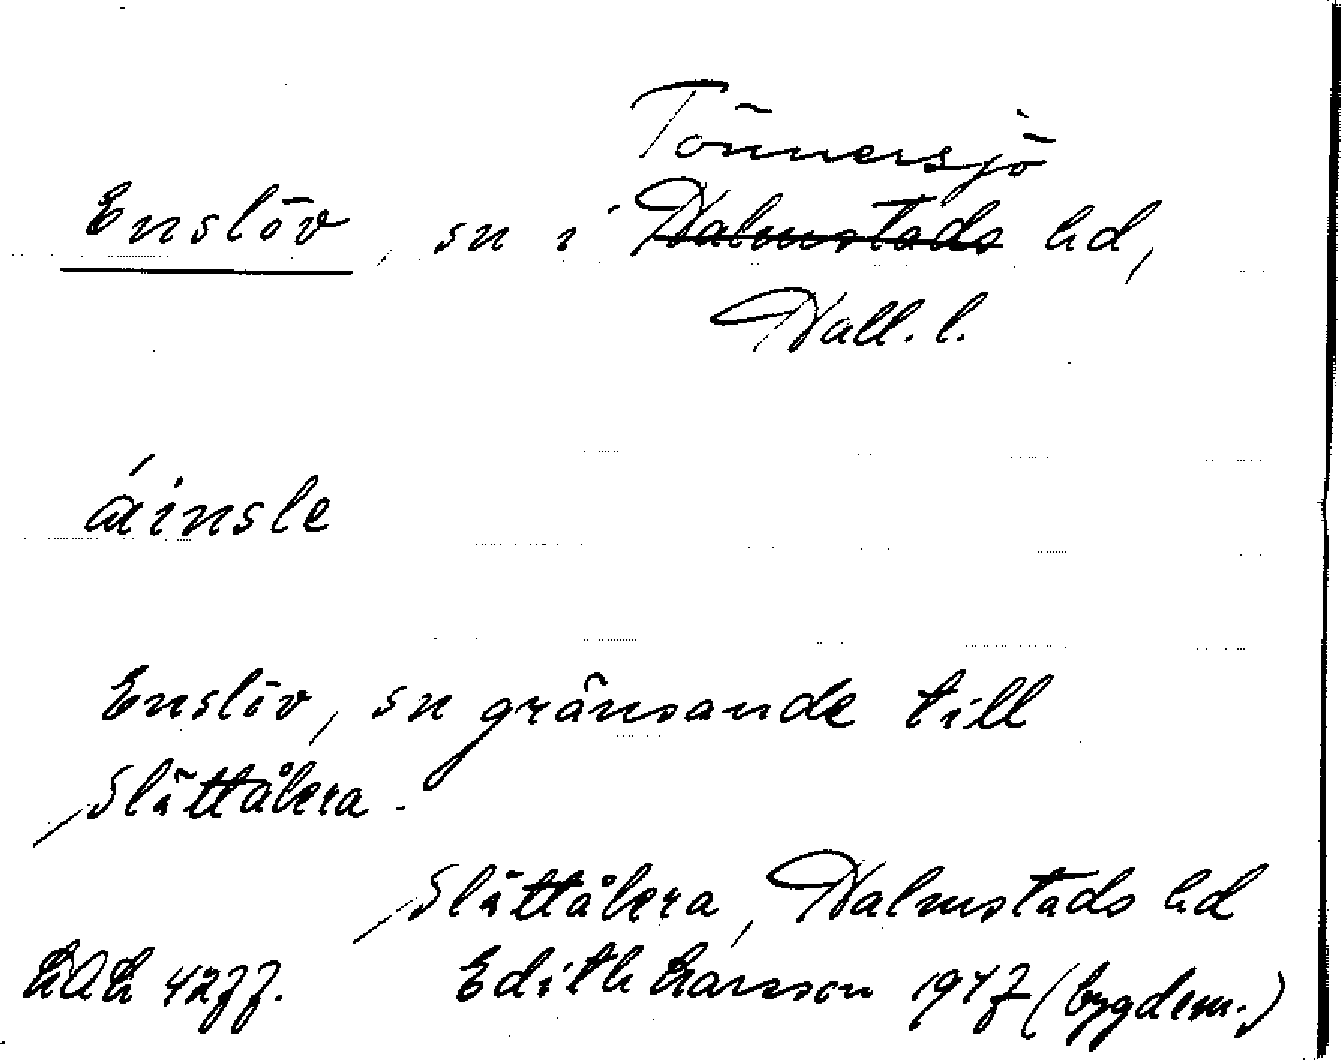 Tönnersjö
Enslöv, sn i Halmstads hd,
Hall. l.
áinsle
Enslöv, sn gränsande till
Slättåkra.
Slättåkra, Halmstads hd
LAL 4277. Edith Larsson 1947 (bygdem.)